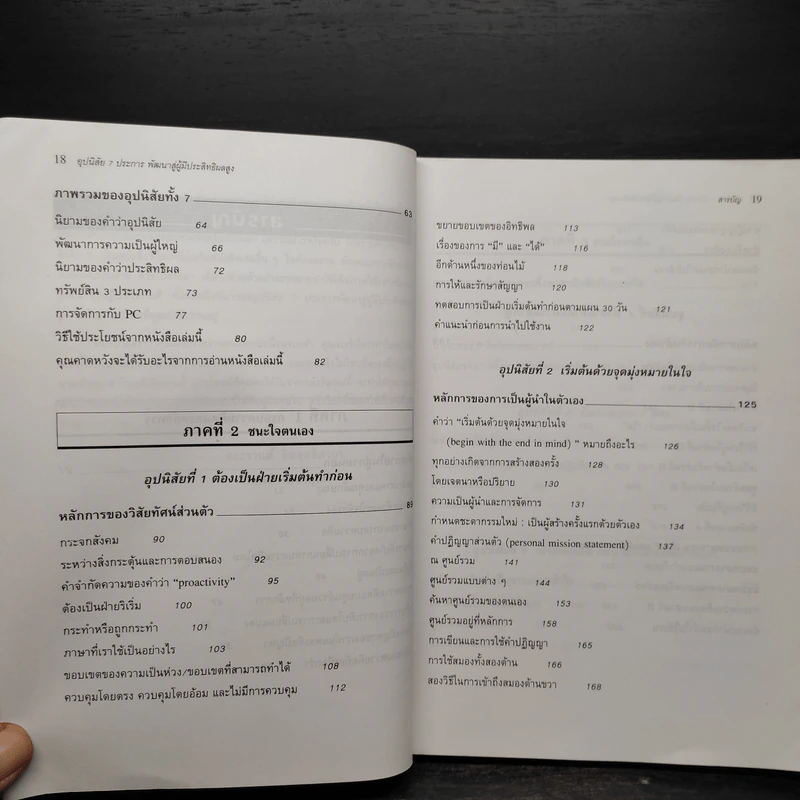 18 อุปนิสัย 7 ประการ พัฒนาสู่ผู้มีประสิทธิผลสูง
ภาพรวมของอุปนิสัยทั้ง 7 63
นิยามของคำว่าอุปนิสัย 64
พัฒนาการความเป็นผู้ใหญ่ 66
นิยามของคำว่าประสิทธิผล 72
ทรัพย์สิน 3 ประเภท 73
การจัดการกับ PC 77
วิธีใช้ประโยชน์จากหนังสือเล่มนี้ 80
คุณคาดหวังจะได้รับอะไรจากการอ่านหนังสือเล่มนี้ 82
ภาคที่ 2 ชนะใจตนเอง
อุปนิสัยที่ 1 ต้องเป็นฝ่ายเริ่มต้นทำก่อน
หลักการของวิสัยทัศน์ส่วนตัว
กระจกสังคม 90
ระหว่างสิ่งกระตุ้นและการตอบสนอง 92
คำจำกัดความของคำว่า "proactivity" 95
ต้องเป็นฝ่ายริเริ่ม 100
กระทำหรือถูกกระทำ 101
ภาษาที่เราใช้เป็นอย่างไร 103
ขอบเขตของความเป็นห่วง/ขอบเขตที่สามารถทำได้ 108
ควบคุมโดยตรง ควบคุมโดยอ้อม และไม่มีการควบคุม 112
สารบัญ 19
ขยายขอบเขตของอิทธิพล 113
เรื่องของการ "มี" และ "ได้" 116
อีกด้านหนึ่งของท่อนไม้ 118
การให้และรักษาสัญญา 120
ทดสอบการเป็นฝ่ายเริ่มต้นทำก่อนตามแผน 30 วัน 121
คำแนะนำก่อนการนำไปใช้งาน 122
อุปนิสัยที่ 2 เริ่มต้นด้วยจุดมุ่งหมายในใจ
หลักการของการเป็นผู้นำในตัวเอง 125
คำว่า "เริ่มต้นด้วยจุดมุ่งหมายในใจ
(begin with the end in mind) " หมายถึงอะไร 126
ทุกอย่างเกิดจากการสร้างสองครั้ง 128
โดยเจตนาหรือปริยาย 130
ความเป็นผู้นำและการจัดการ 131
กำหนดชะตากรรมใหม่ : เป็นผู้สร้างครั้งแรกด้วยตัวเอง 134
คำปฏิญญาส่วนตัว (personal mission statement) 137
ณ ศูนย์รวม 141
ศูนย์รวมแบบต่าง ๆ 144
ค้นหาศูนย์รวมของตนเอง 153
ศูนย์รวมอยู่ที่หลักการ 158
การเขียนและการใช้คำปฏิญญา 165
การใช้สมองทั้งสองด้าน 166
สองวิธีในการเข้าถึงสมองด้านขวา 168